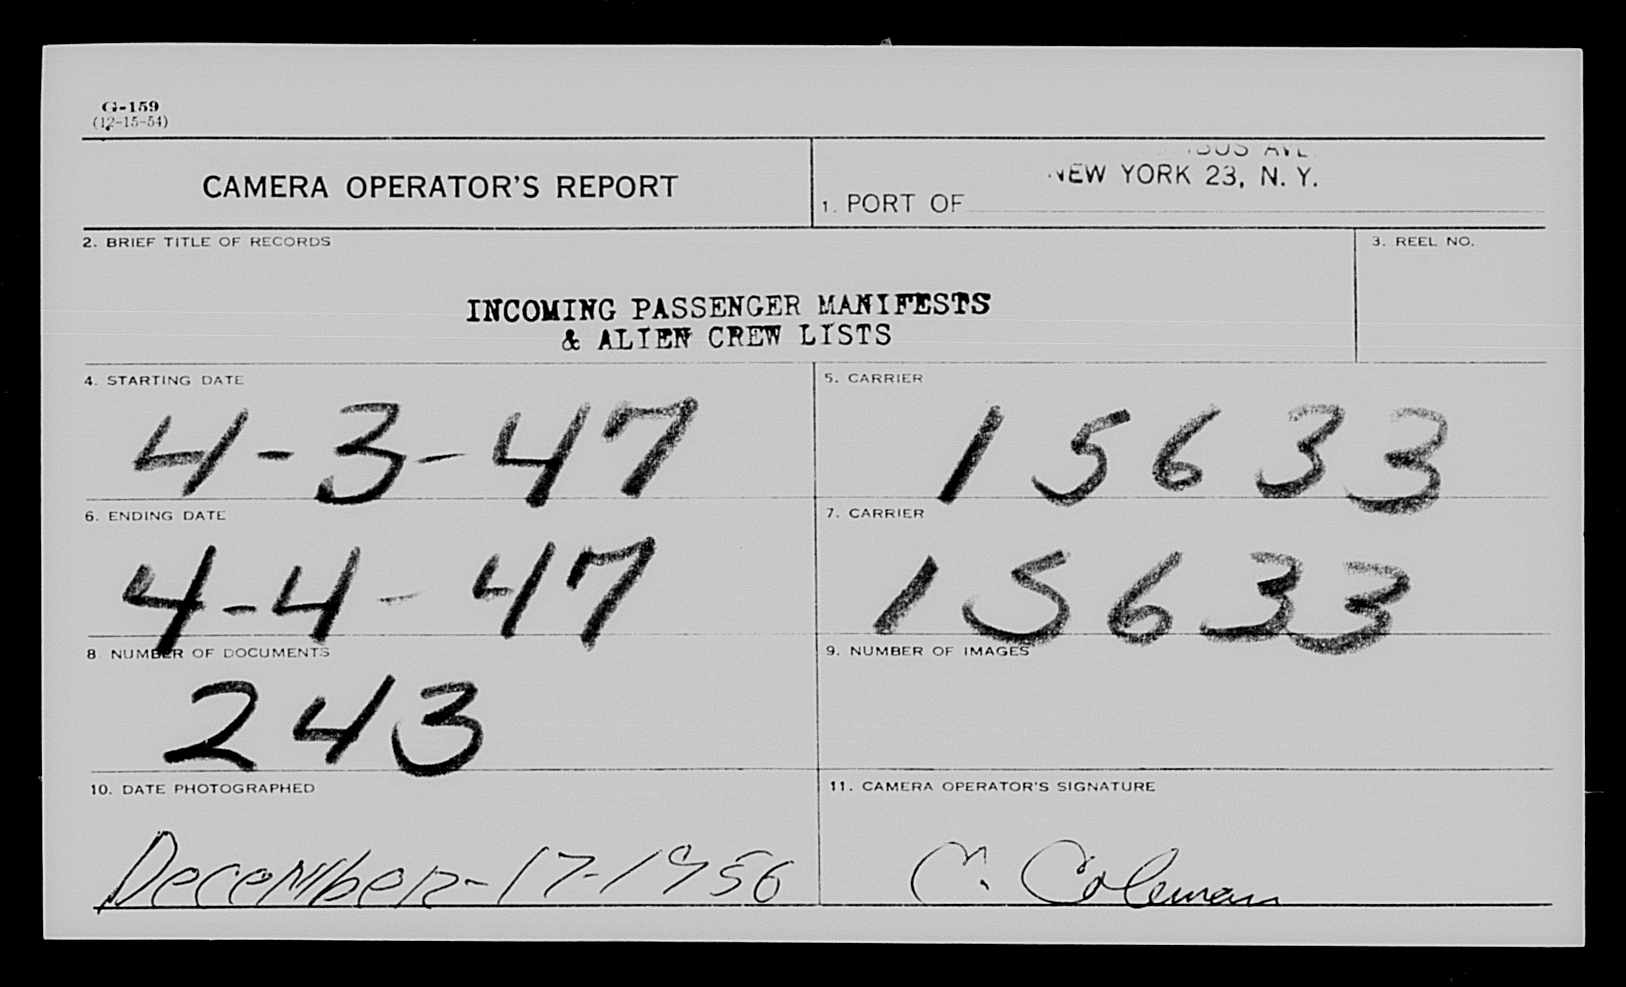 G-159
(12-15-54)
CAMERA OPERATOR'S REPORT
AVE
NEW YORK 23, N. Y.
1. PORT OF
2. BRIEF TITLE OF RECORDS
3. REEL NO.
INCOMING PASSENGER MANIFESTS
& ALIEN CREW LISTS
4. STARTING DATE
5. CARRIER
4-3-47
15633
6. ENDING DATE
7. CARRIER
4-4-47
15633
8. NUMBER OF DOCUMENTS
9. NUMBER OF IMAGES
243
10. DATE PHOTOGRAPHED
11. CAMERA OPERATOR'S SIGNATURE
December-17-1956
C. Coleman